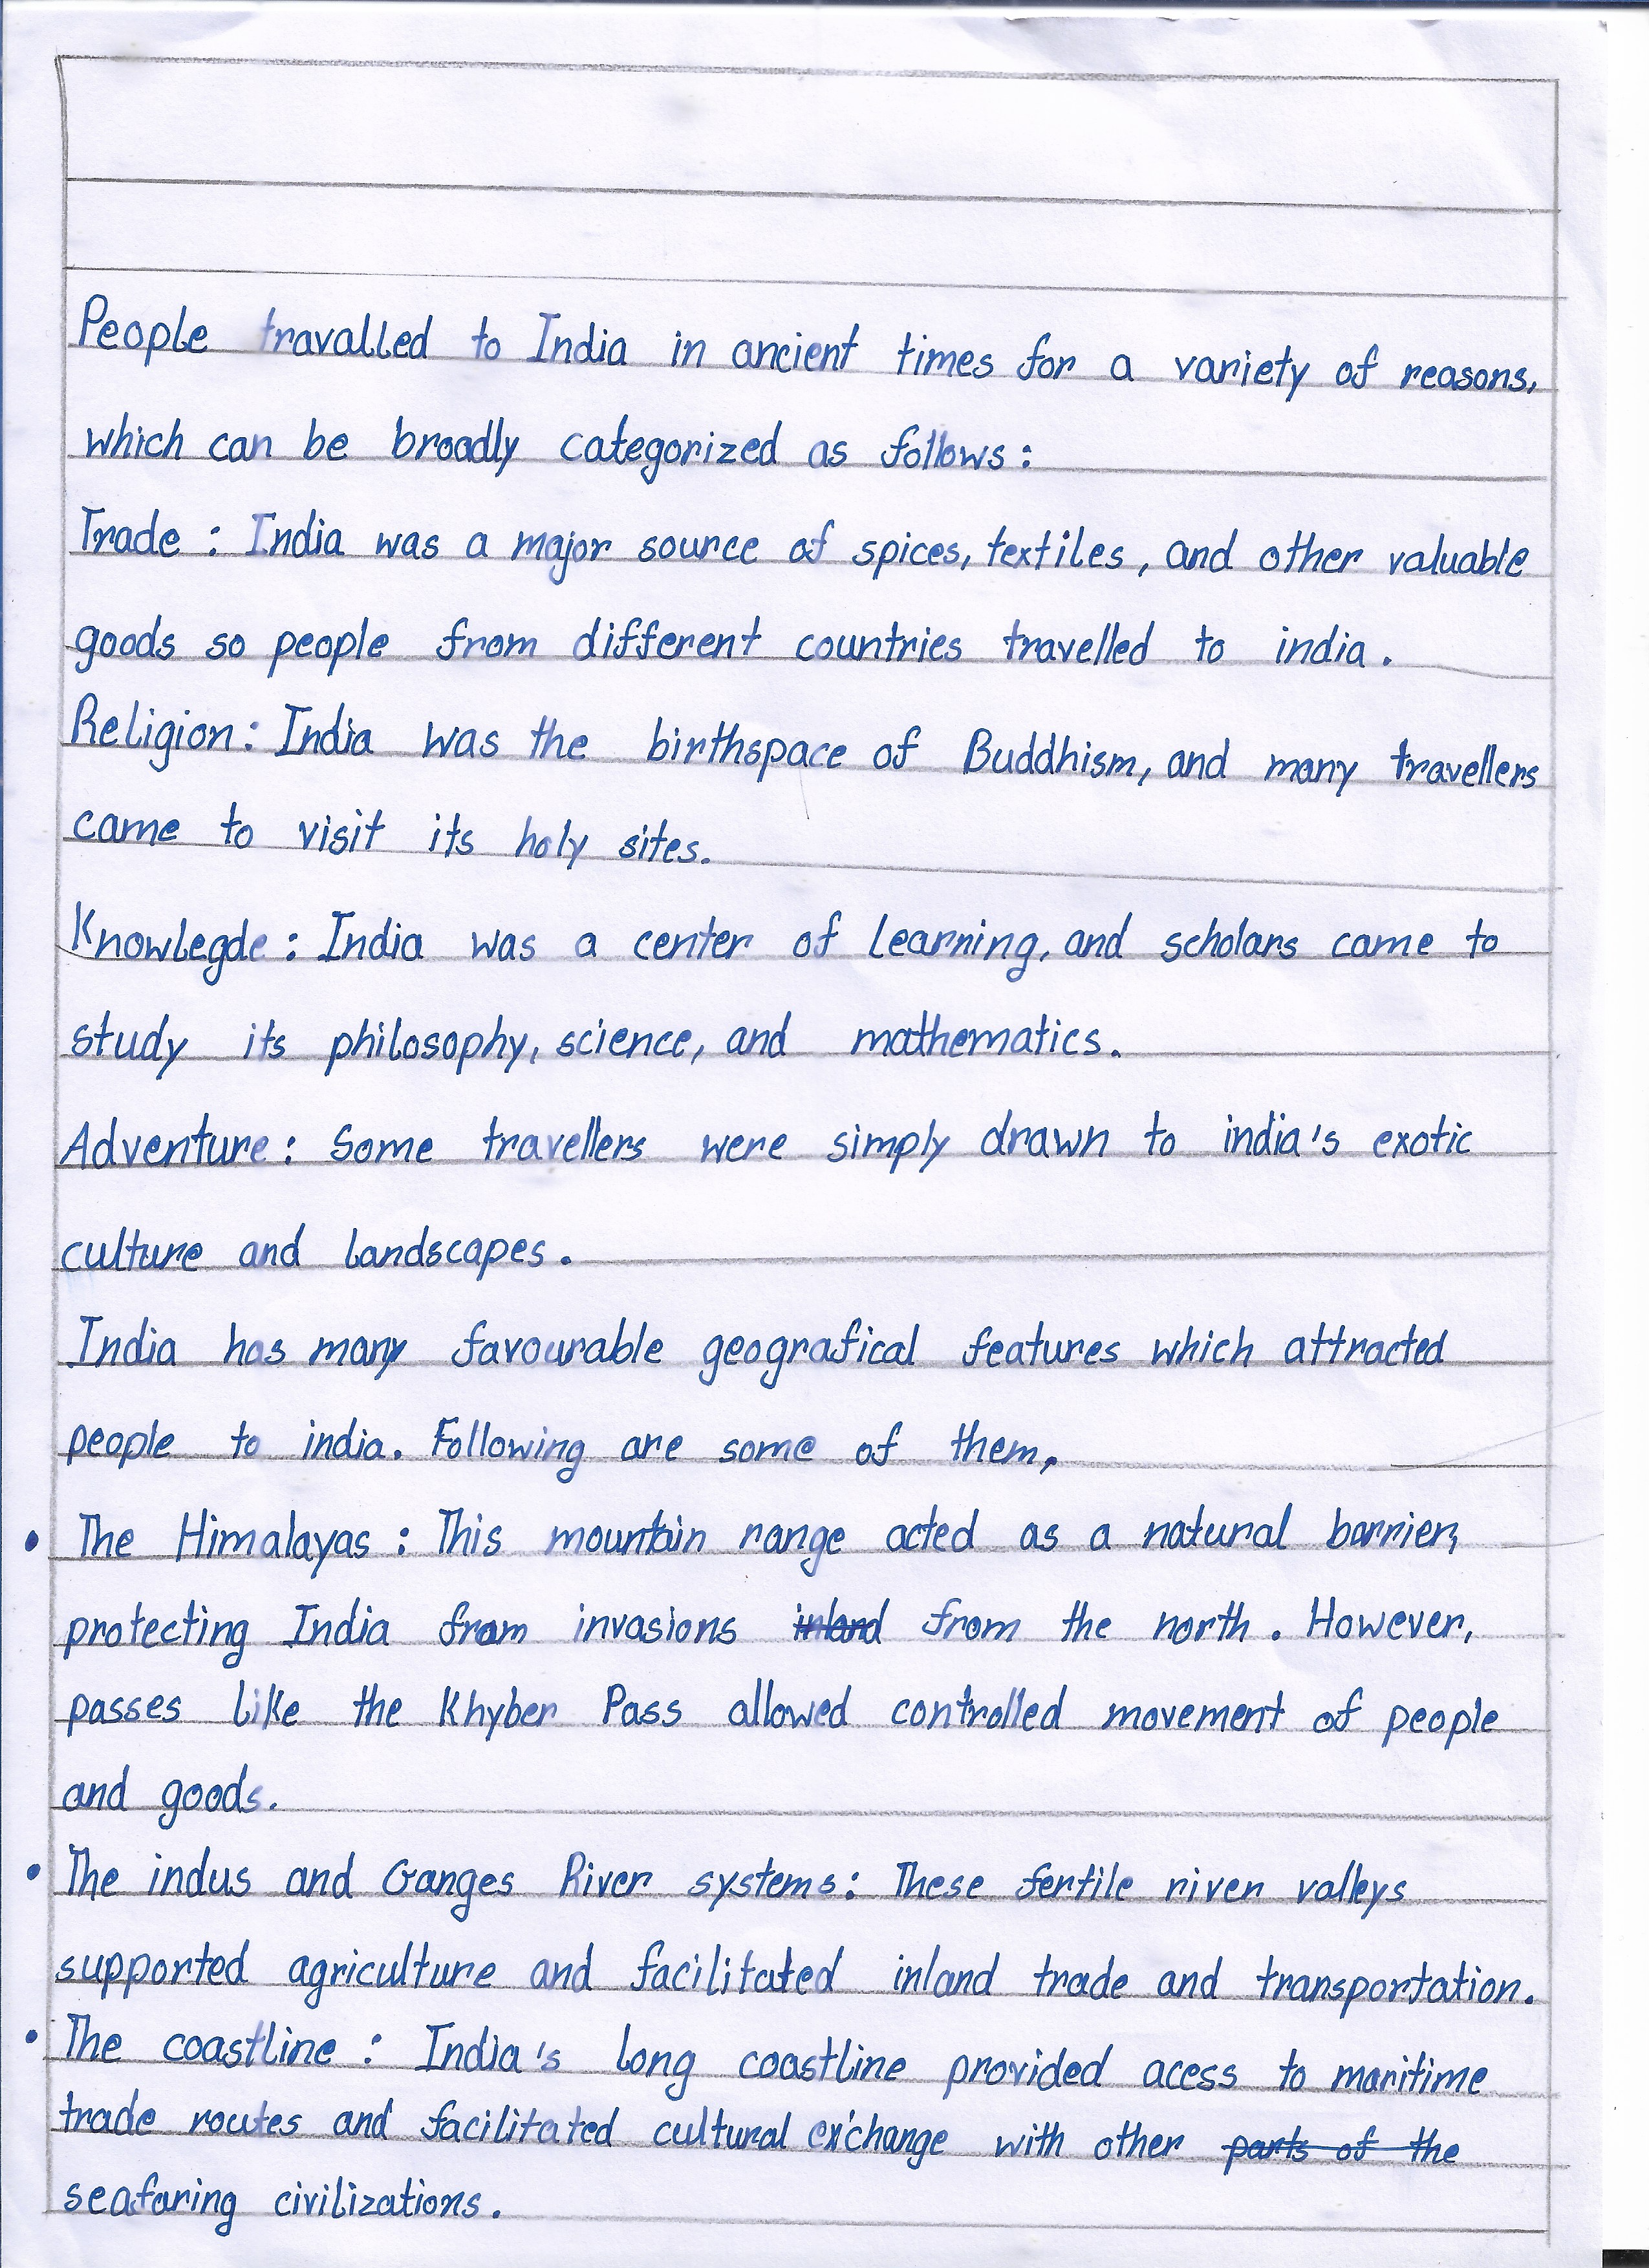 People travalled to India in ancient times for a variety of reasons,
which can be broadly categorized as follows:
Trade : India was a major source of spices, textiles, and other valuable
goods so people from different countries travelled to india.
Religion: India was the birthspace of Buddhism, and many travellers
came to visit its holy sites.
Knowlegde: India was a center of learning, and scholars came to
study its philosophy, science, and mathematics.
Adventure: Some travellers were simply drawn to india's exotic
culture and landscapes.
India has many favourable geografical features which attracted
people to india. Following are some of them,
• The Himalayas : This mountain range acted as a natural barrier,
protecting India from invasions inland from the north. However,
passes like the Khyber Pass allowed controlled movement of people
and goods.
• The indus and Ganges River systems: These fertile river valleys
supported agriculture and facilitated inland trade and transportation.
• The coastline : India's long coastline provided acess to maritime
trade routes and facilitated cultural exchange with other parts of the
seafaring civilizations.